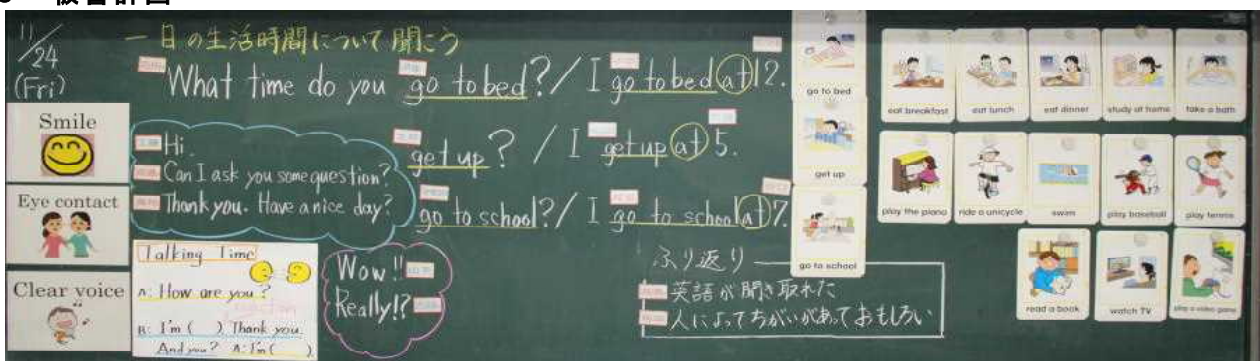 板書計画
11/24
(Fri)
一日の生活時間について聞こう
What time do you go to bed? / I go to bed at 12.
get up? / I get up at 5.
go to school? / I go to school at 7.
Smile
Eye contact
Clear voice
Hi.
Can I ask you some question?
Thank you. Have a nice day?
Talking Time
A: How are you?
B: I'm ( ) Thank you.
And you? A: I'm ( )
Wow!!
Really!?
ふり返り
英語が聞き取れた
人によってちがいがあっておもしろい
go to bed
get up
go to school
eat breakfast
eat lunch
eat dinner
study at home
take a bath
play the piano
ride a unicycle
swim
play baseball
play tennis
read a book
watch TV
play a video game